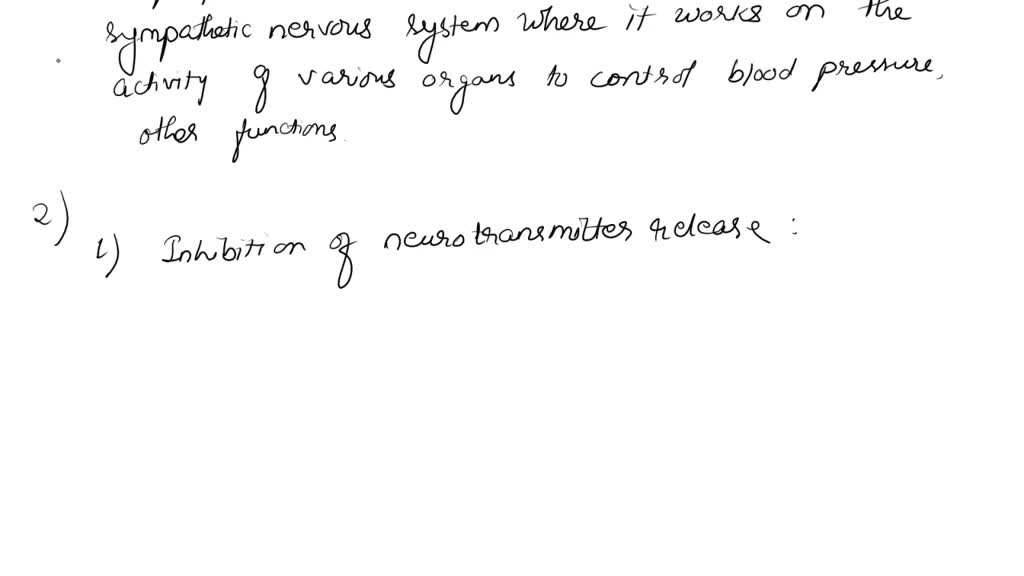 sympathetic nervous system where it works on the
activity of various organs to control blood pressure,
other functions.
2)
i) Inhibition of neurotransmitter release :